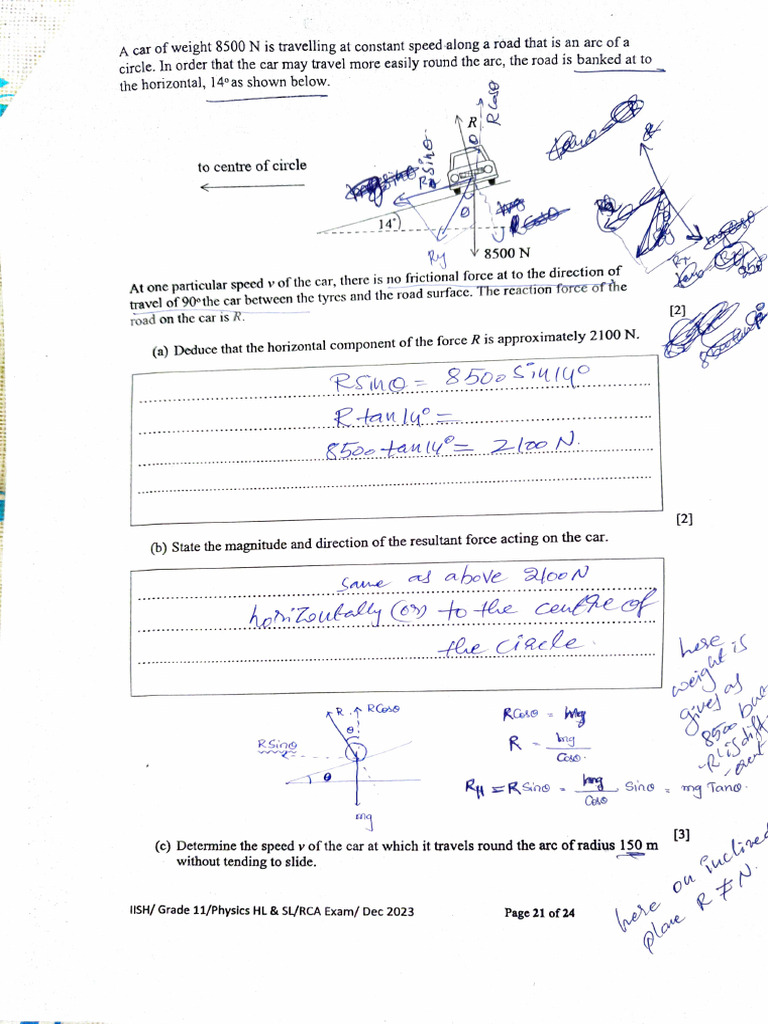 A car of weight 8500 N is travelling at constant speed along a road that is an arc of a
circle. In order that the car may travel more easily round the arc, the road is banked at to
the horizontal, 14° as shown below.
R
R cosθ
θ
to centre of circle
R sinθ
14°
θ
Ry
8500 N
At one particular speed v of the car, there is no frictional force at to the direction of
travel of 90° the car between the tyres and the road surface. The reaction force of the
road on the car is R.
[2]
(a) Deduce that the horizontal component of the force R is approximately 2100 N.
Rsinθ = 8500 sin14°
R tan14° =
8500 tan14° = 2100 N.
[2]
(b) State the magnitude and direction of the resultant force acting on the car.
same as above 2100 N
horizontally (or) to the centre of
the circle.
here
weight is
given as
8500 but
R is diff
erent
R
Rcosθ
θ
Rsinθ
θ
mg
Rcosθ = mg
R = mg / cosθ.
RH = R sinθ = mg / cosθ sinθ = mg Tanθ.
[3]
(c) Determine the speed v of the car at which it travels round the arc of radius 150 m
without tending to slide.
here on inclined
plane R ≠ N.
IISH/ Grade 11/Physics HL & SL/RCA Exam/ Dec 2023
Page 21 of 24